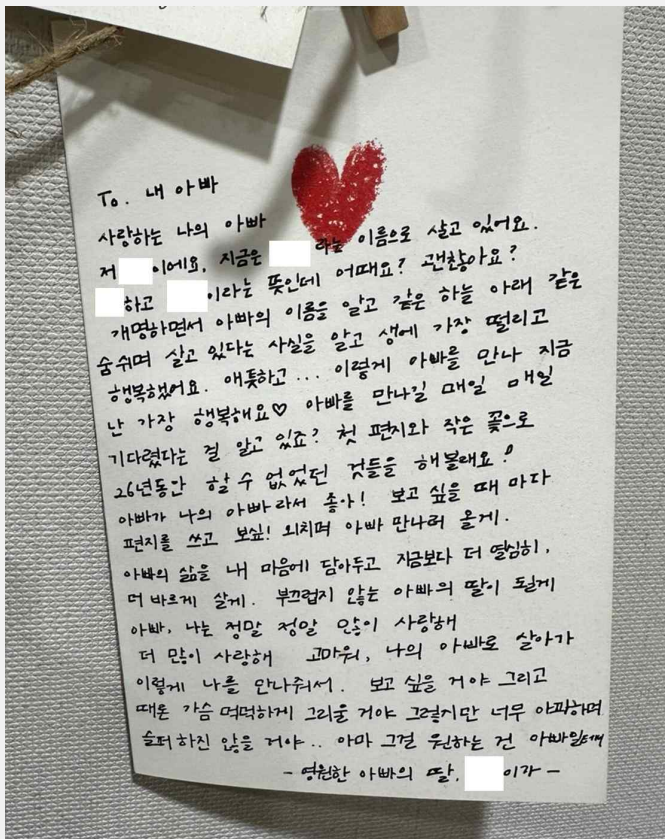 To. 내 아빠
사랑하는 나의 아빠
저 이에요, 지금은 라는 이름으로 살고 있어요.
하고 이라는 뜻인데 어때요? 괜찮아요?
개명하면서 아빠의 이름을 알고 같은 하늘 아래 같은
숨쉬며 살고 있다는 사실을 알고 생에 가장 떨리고
행복했어요. 애틋하고... 이렇게 아빠를 만나 지금
난 가장 행복해요♡ 아빠를 만나길 매일 매일
기다렸다는 걸 알고 있죠? 첫 편지와 작은 꽃으로
26년동안 할 수 없었던 것들을 해볼래요!
아빠가 나의 아빠라서 좋아! 보고 싶을 때 마다
편지를 쓰고 보싶! 외치며 아빠 만나러 올게.
아빠의 삶을 내 마음에 담아두고 지금보다 더 열심히,
더 바르게 살게. 부끄럽지 않는 아빠의 딸이 될게
아빠, 나는 정말 정말 많이 사랑해
더 많이 사랑해 고마워, 나의 아빠로 살아가
이렇게 나를 만나줘서. 보고 싶을 거야 그리고
때론 가슴 먹먹하게 그리울 거야 그렇지만 너무 아파하며
슬퍼 하진 않을 거야.. 아마 그걸 원하는 건 아빠일테니
- 영원한 아빠의 딸, 이가 -